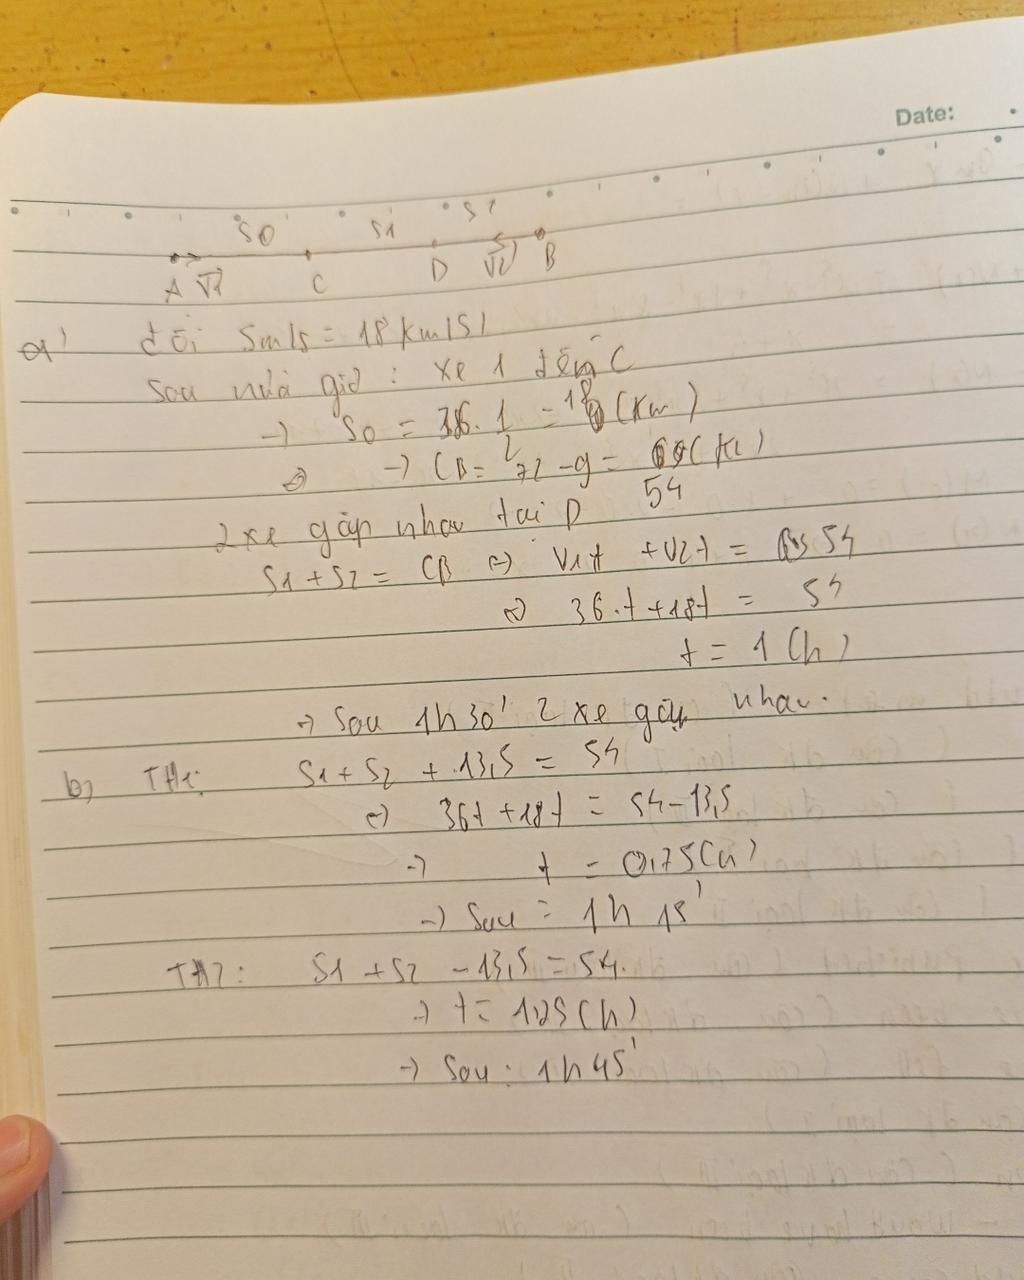 Date:
S0 S1 S2
A V1 C D V2 B
a) đổi 5m/s = 18 km/s)
Sau nửa giờ : xe 1 đến C
→ S0 = 36. 1/2 = 18 (km)
→ CB = 72 - 9 =
54
2 xe gặp nhau tại D
S1 + S2 = CB ⇔ V1t + V2t = 54
⇔ 36.t + 18t = 54
t = 1 (h)
⇒ Sau 1h 30' 2 xe gặp nhau.
b) TH1: S1 + S2 + 13,5 = 54
⇔ 36t + 18t = 54 - 13,5
→ t = 0,75 (h)
→ Sau = 1h 15'
TH2: S1 + S2 - 13,5 = 54.
→ t = 1,25 (h)
→ Sau : 1h 45'